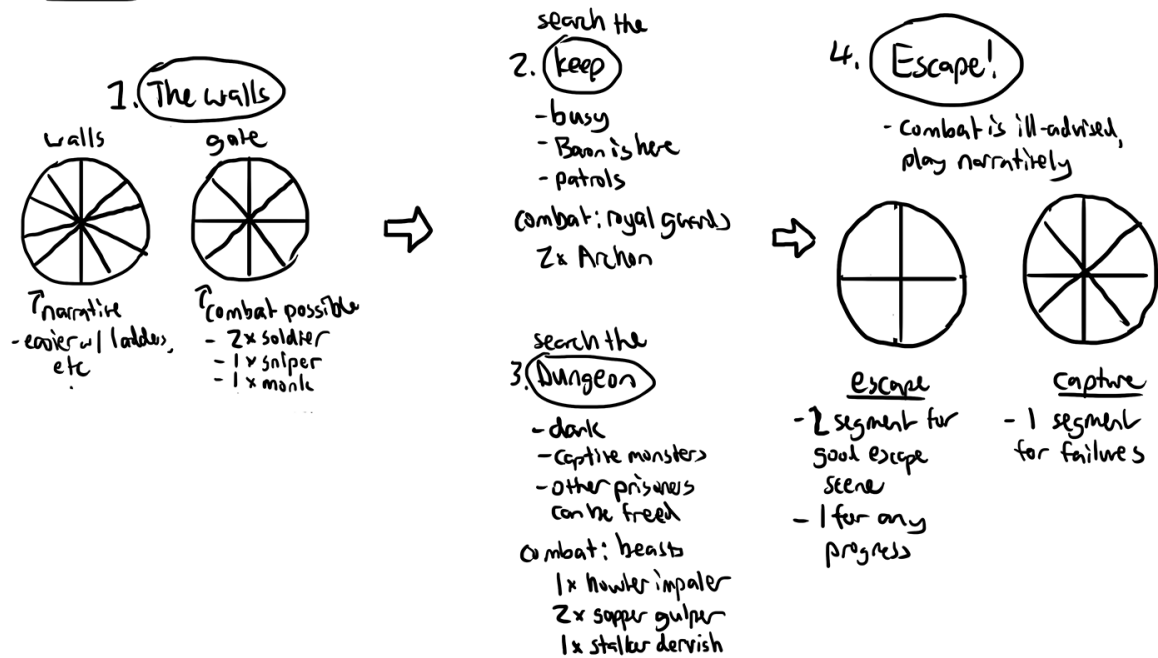 1. The walls
walls
gate
narrative
- easier w/ ladders,
etc
combat possible
- 2x soldier
- 1x sniper
- 1x monk
search the
2. keep
- busy
- Baron is here
- patrols
combat: royal guards
2x Archon
search the
3. Dungeon
- dark
- captive monsters
- other prisoners
can be freed
combat: beasts
1x howler impaler
2x sapper gulper
1x stalker dervish
4. Escape!
- combat is ill-advised,
play narratively
escape
- 2 segment for
good escape
scene
- 1 for any
progress
capture
- 1 segment
for failures